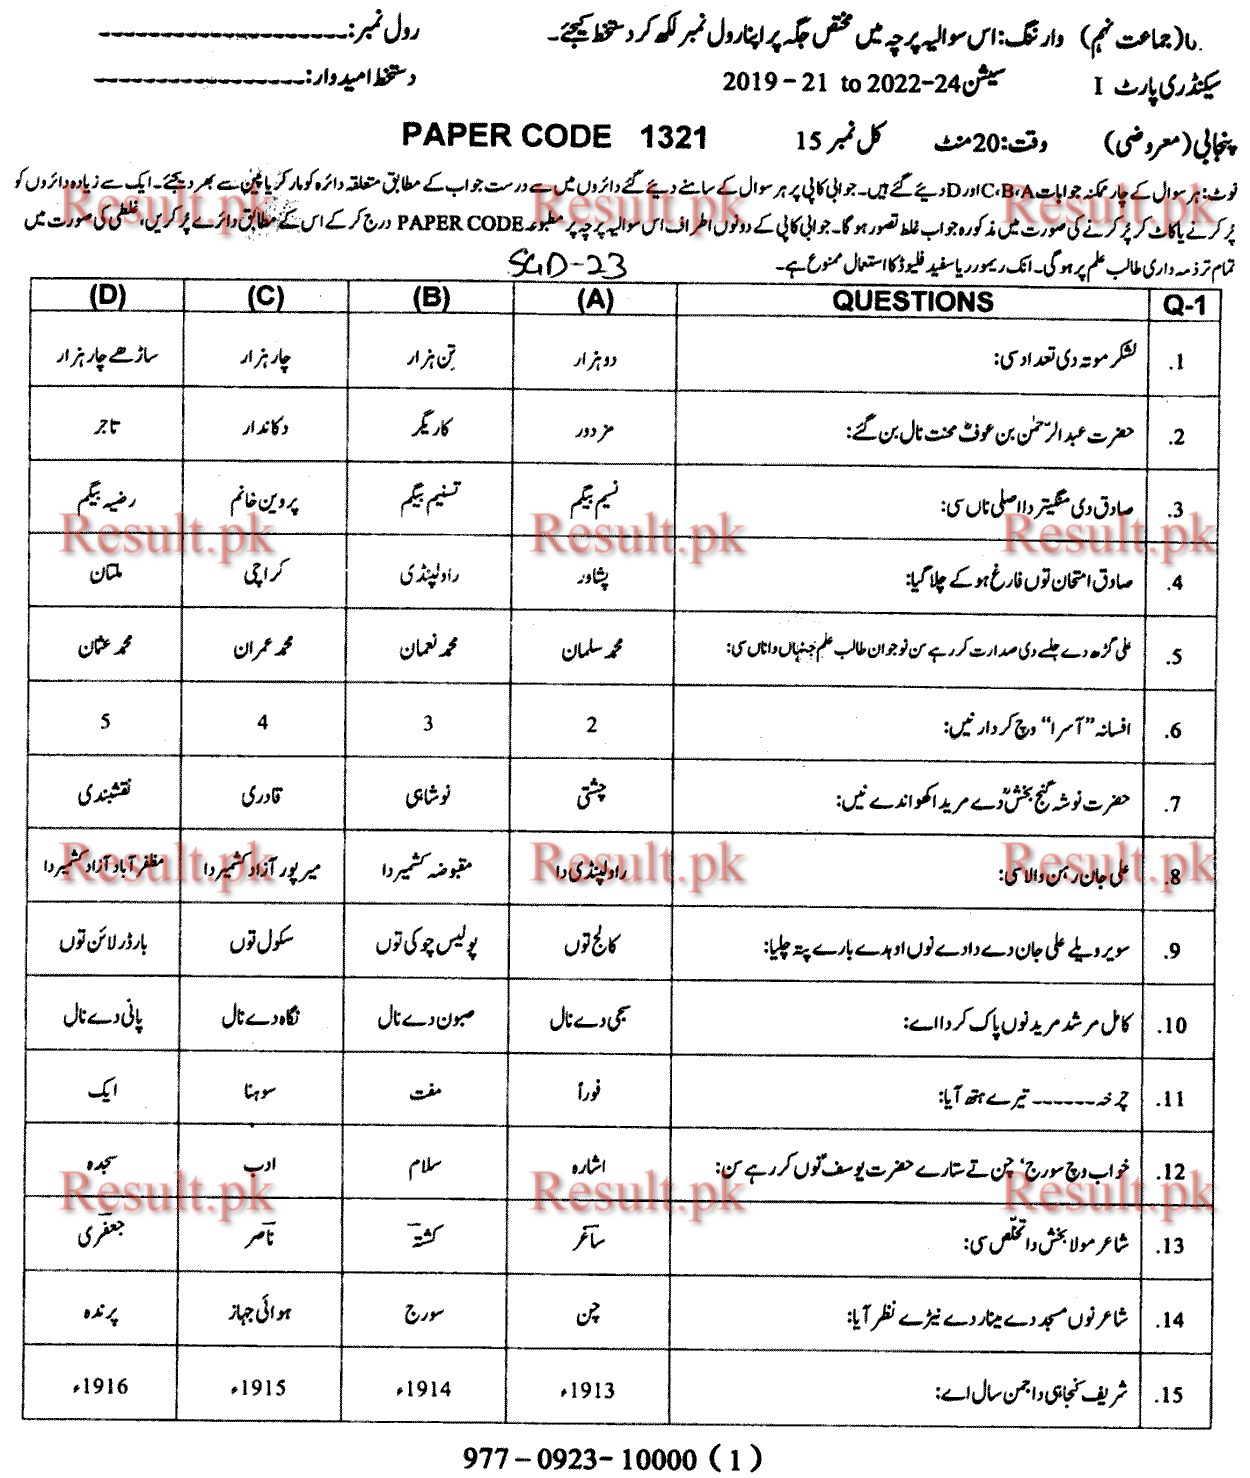 (جماعت نہم) وارننگ: اس سوالیہ پرچہ میں مختص جگہ پر اپنا رول نمبر لکھ کر دستخط کیجئے۔ رول نمبر: --------------------
سیکنڈری پارٹ I سیشن 2019 – 21 to 2022–24 دستخط امیدوار: --------------------
پنجابی (معروضی) وقت: 20 منٹ کل نمبر 15 PAPER CODE 1321
نوٹ: ہر سوال کے چار ممکنہ جوابات C،B،A اور D دیئے گئے ہیں۔ جوابی کاپی پر ہر سوال کے سامنے دیئے گئے دائروں میں سے درست جواب کے مطابق متعلقہ دائرہ کو مارکر یا پین سے بھر دیجئے۔ ایک سے زیادہ دائروں کو
پُر کرنے یا کاٹ کر پُر کرنے کی صورت میں مذکورہ جواب غلط تصور ہو گا۔ جوابی کاپی کے دونوں اطراف اس سوالیہ پرچہ پر مطبوعہ PAPER CODE درج کر کے اس کے مطابق دائرے پُر کریں، غلطی کی صورت میں
تمام تر ذمہ داری طالب علم پر ہو گی۔ انک ریموور یا سفید فلیوڈ کا استعمال ممنوع ہے۔ SGD-23
Q-1 QUESTIONS (A) (B) (C) (D)
1. لشکر موتہ دی تعداد سی: دو ہزار تن ہزار چار ہزار ساڑھے چار ہزار
2. حضرت عبدالرّحمٰن بن عوفؓ محنت نال بن گئے: مزدور کاریگر دکاندار تاجر
3. صادق دی منگیتر دا اصلی ناں سی: نسیم بیگم تسنیم بیگم پروین خانم رضیہ بیگم
4. صادق امتحان توں فارغ ہو کے چلا گیا: پشاور راولپنڈی کراچی ملتان
5. علی گڑھ دے جلسے دی صدارت کر رہے سن نوجوان طالب علم جنہاں دا ناں سی: محمد سلمان محمد نعمان محمد عمران محمد عثمان
6. افسانہ "آسرا" وچ کردار نیں: 2 3 4 5
7. حضرت نوشہ گنج بخشؒ دے مرید اکھواندے نیں: چشتی نوشاہی قادری نقشبندی
8. علی جان رہن والا سی: راولپنڈی دا مقبوضہ کشمیر دا میرپور آزاد کشمیر دا مظفر آباد آزاد کشمیر دا
9. سویر ویلے علی جان دے دادے نوں اوہدے بارے پتہ چلیا: کالج توں پولیس چوکی توں سکول توں بارڈر لائن توں
10. کامل مرشد مرید نوں پاک کردا اے: سجی دے نال صبون دے نال نگاہ دے نال پانی دے نال
11. چرخہ ------ تیرے ہتھ آیا: فوراً مفت سوہنا ایک
12. خواب وچ سورج، چن تے ستارے حضرت یوسفؑ نوں کر رہے سن: اشارہ سلام ادب سجدہ
13. شاعر مولا بخش دا تخلّص سی: ساغر کشتہ ناصر جعفری
14. شاعر نوں مسجد دے مینار دے نیڑے نظر آیا: چن سورج ہوائی جہاز پرندہ
15. شریف کنجاہی دا جمن سال اے: 1913ء 1914ء 1915ء 1916ء
977 – 0923 – 10000 ( 1 )
Result.pk Result.pk Result.pk
Result.pk Result.pk Result.pk
Result.pk Result.pk Result.pk
Result.pk Result.pk Result.pk